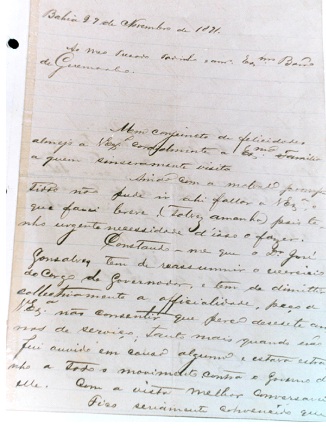 Bahia 27 de Novembro de 1891.
Exmo Barão
de Guremoabo.
Meu conjuncto de felicidades
almejo a VExa. Exma Familia
a quem sinceramente visito.
Ainda com a
não pude ir ali fallar a VExa o
que farei breve (talvez amanhã) pois te
nho urgente necessidade d'isso o fazer.
Consta-me que o Dr. José
Gonsalves tem de reassumir o exercicio
do Cargo de Governador, e tem de dimittir
collectivamente a officialidade, peço a
VExa não consentir que perca dezesete an
nos de serviço, tanto mais quando não
fui ouvido em cousa alguma e estava estra
nho a todo o movimento contra o governo d'
elle. Com a vista melhor conversarei
Fico seriamente convencido que